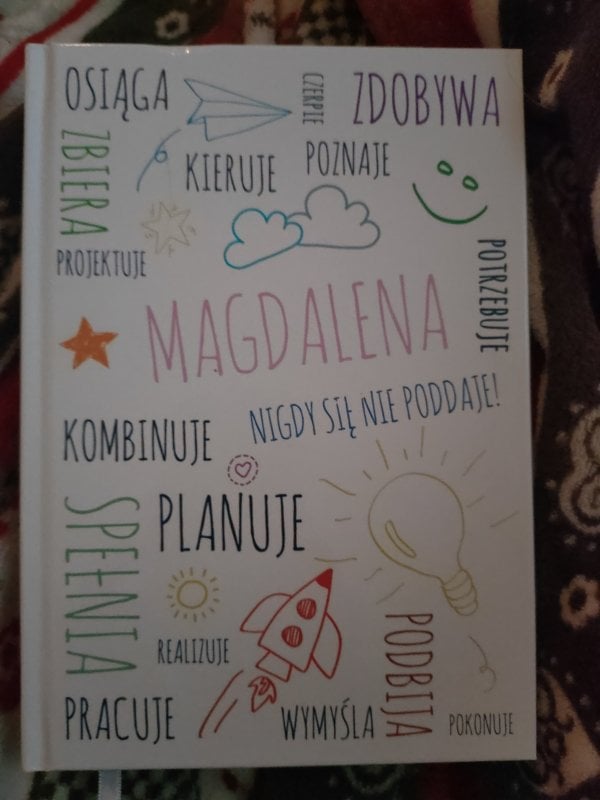 OSIĄGA
CZERPIE
ZDOBYWA
ZBIERA
KIERUJE
POZNAJE
PROJEKTUJE
POTRZEBUJE
MAGDALENA
NIGDY SIĘ NIE PODDAJE!
KOMBINUJE
PLANUJE
SPEŁNIA
REALIZUJE
PODBIJA
PRACUJE
WYMYŚLA
POKONUJE